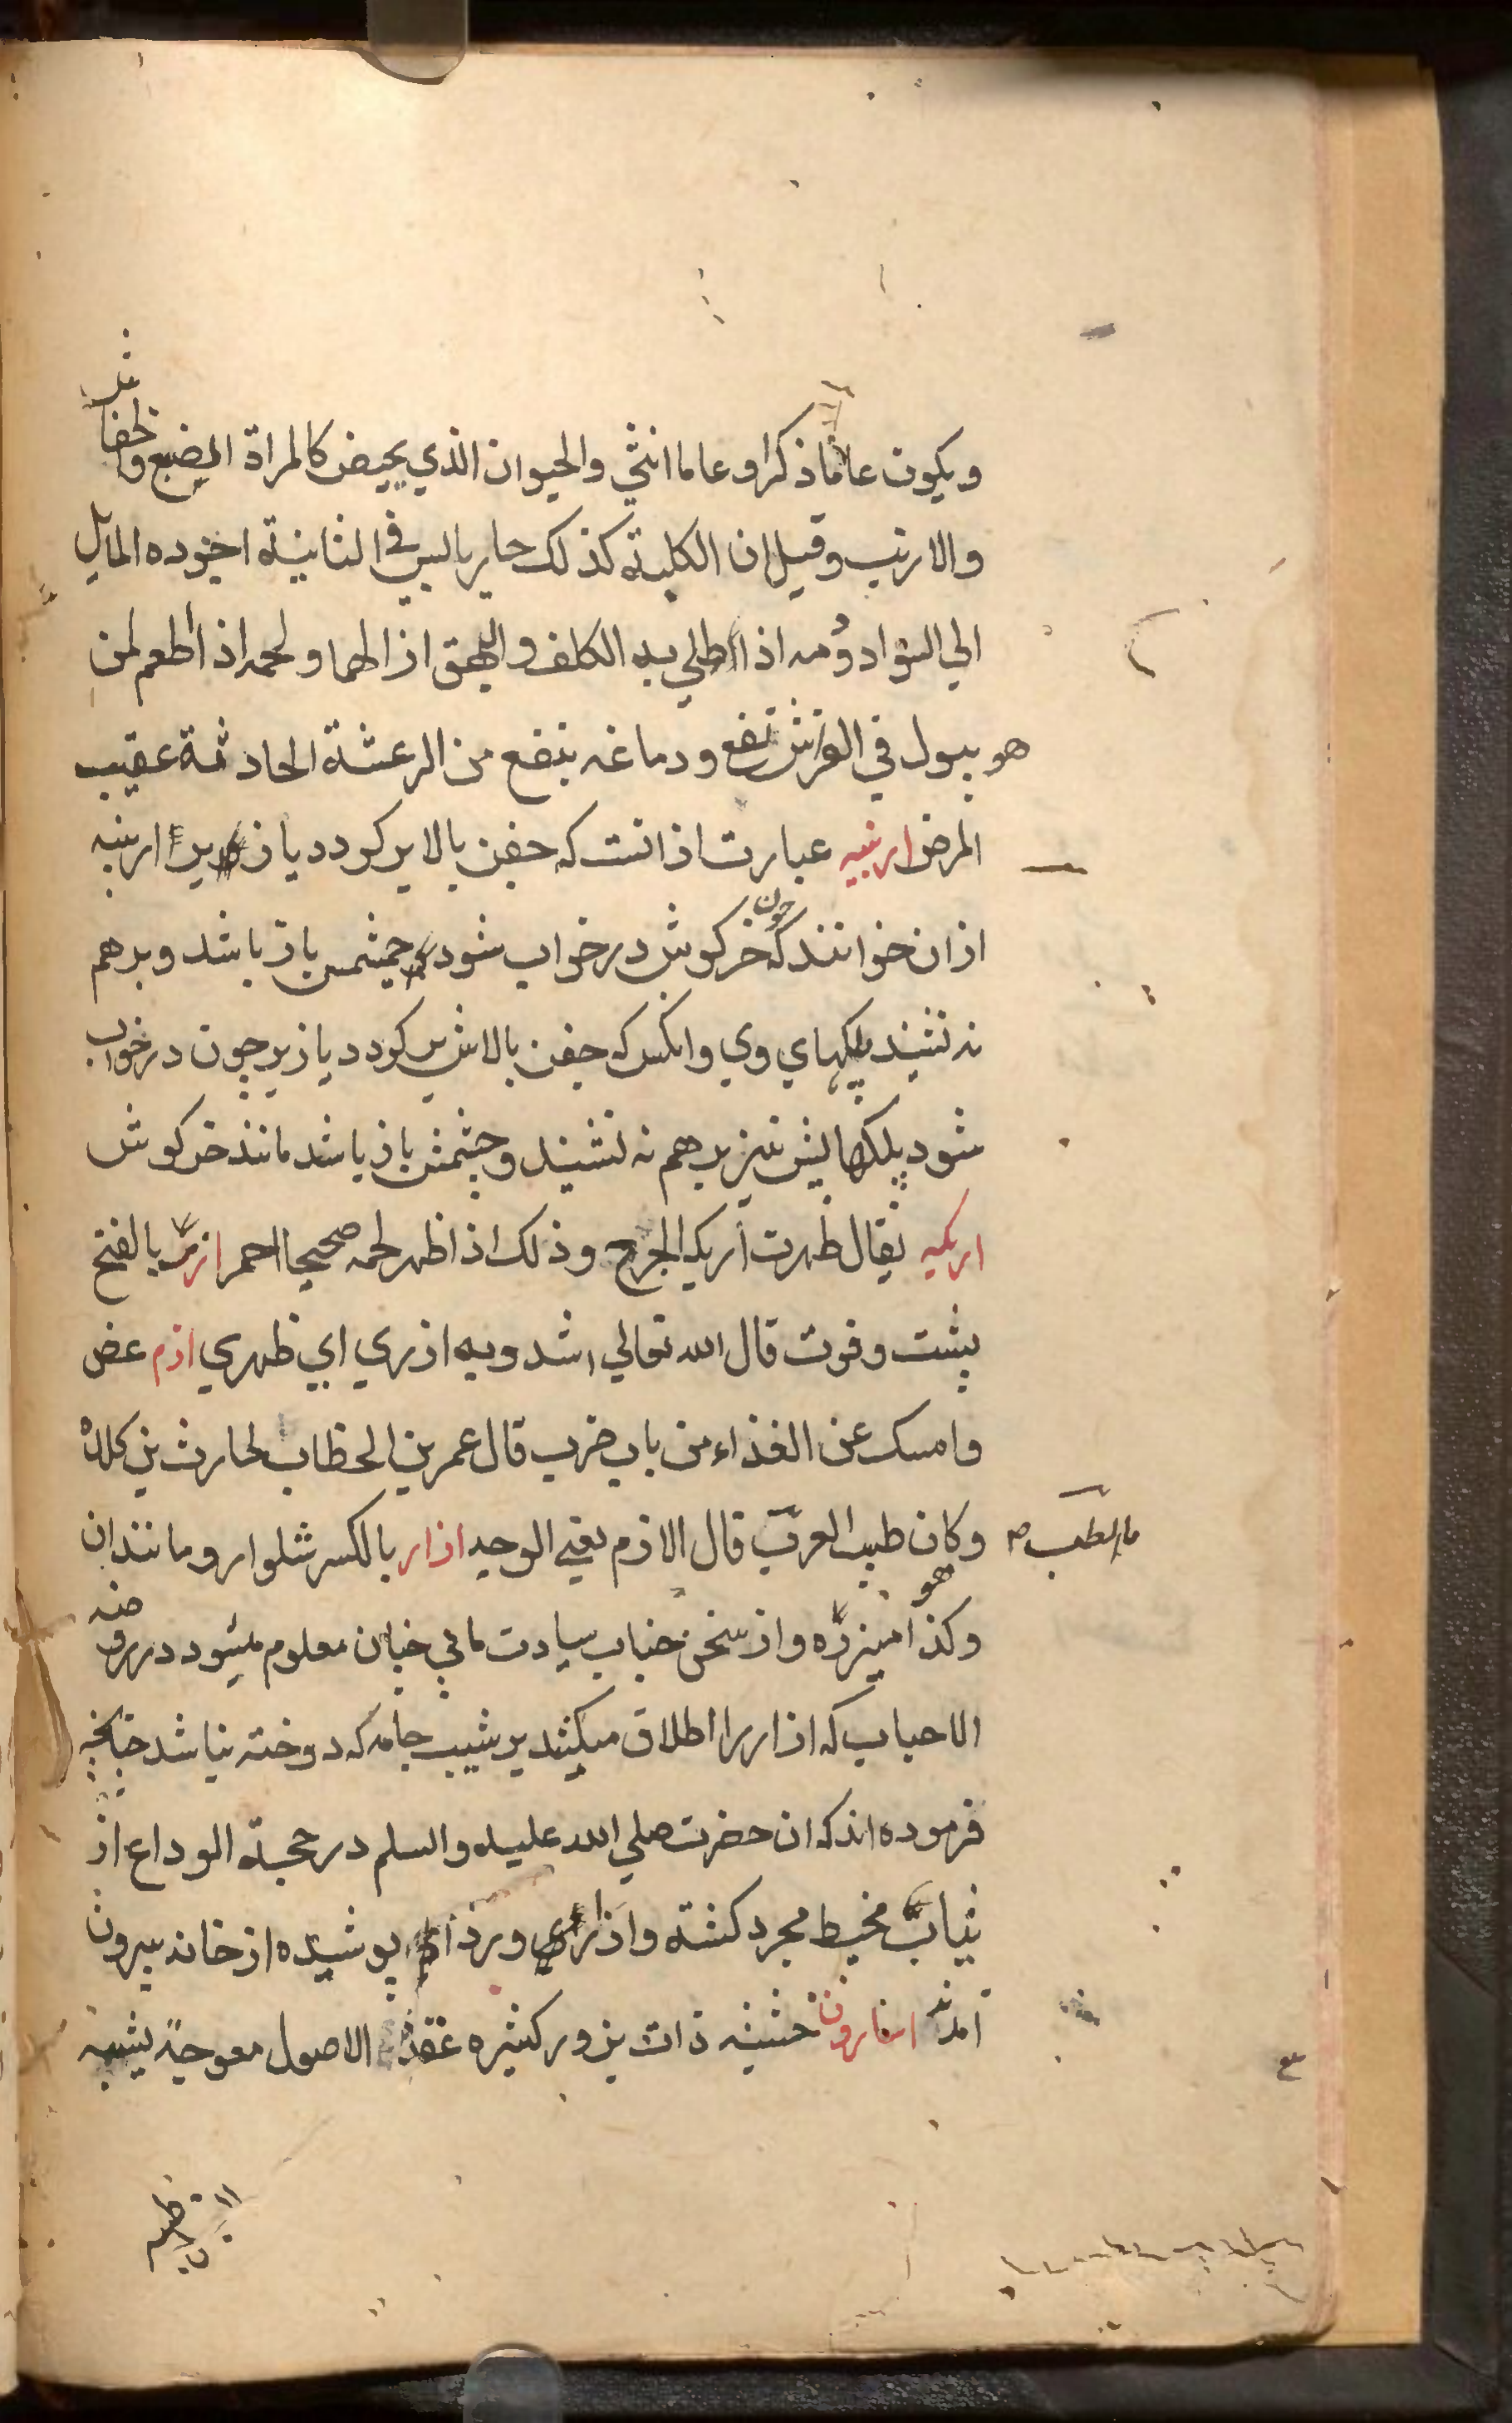 ويكون عاما ذكرا وعاما انثي والحيوان الذي يحيض كالمراة الضبع والخفاش
والارنب وقيل ان الكلبة كذلك حار يابس في الثانية اجوده المايل
الي السواد ودمه اذا طلي به الكلف والبهق ازالهما ولحمه اذا اطعم لمن
هو يبول في الفراش نفع ودماغه ينفع من الرعشة الحادثة عقيب
المرض ارنبيه عبارت از انست كه جفن بالا بر كردد يا زيرين ارنبيه
از ان خوانند كه چون خركوش در خواب شود چشمش باز باشد و برهم
نه نشيند پلكهاي وي و انكس كه جفن بالاش بر كردد يا زير چون در خواب
شود پلكهايش نيز برهم نه نشيند و چشمش باز باشد مانند خركوش
اريكه يقال ظهرت اريكة الجرح وذلك اذا ظهر لحمه صحيحا احمر ازر بالفتح
پشت وقوت قال الله تعالي اشدد به ازري اي ظهري ازم عض
وامسك عن الغذاء من باب ضرب قال عمر بن الخطاب لحارث بن كلدة
وكان طبيب العرب ما الطب قال الازم يعني الوجبه ازار بالكسر شلوار و مانند ان
وكذا ميزره و از سخن جناب سيادت مابي چنان معلوم ميشود در روضة
الاحباب كه ازار را اطلاق ميكنند بر شيب جامه كه دوخته نباشد چنانچه
فرموده اند كه ان حضرت صلي الله عليه والسلم در حجة الوداع از
ثياب مخيط مجرد كشته و ازاري و ردائي پوشيده از خانه بيرون
آمدند اسارون حشيشه ذات بزور كثيره عقدة الاصول معوجة يشبه